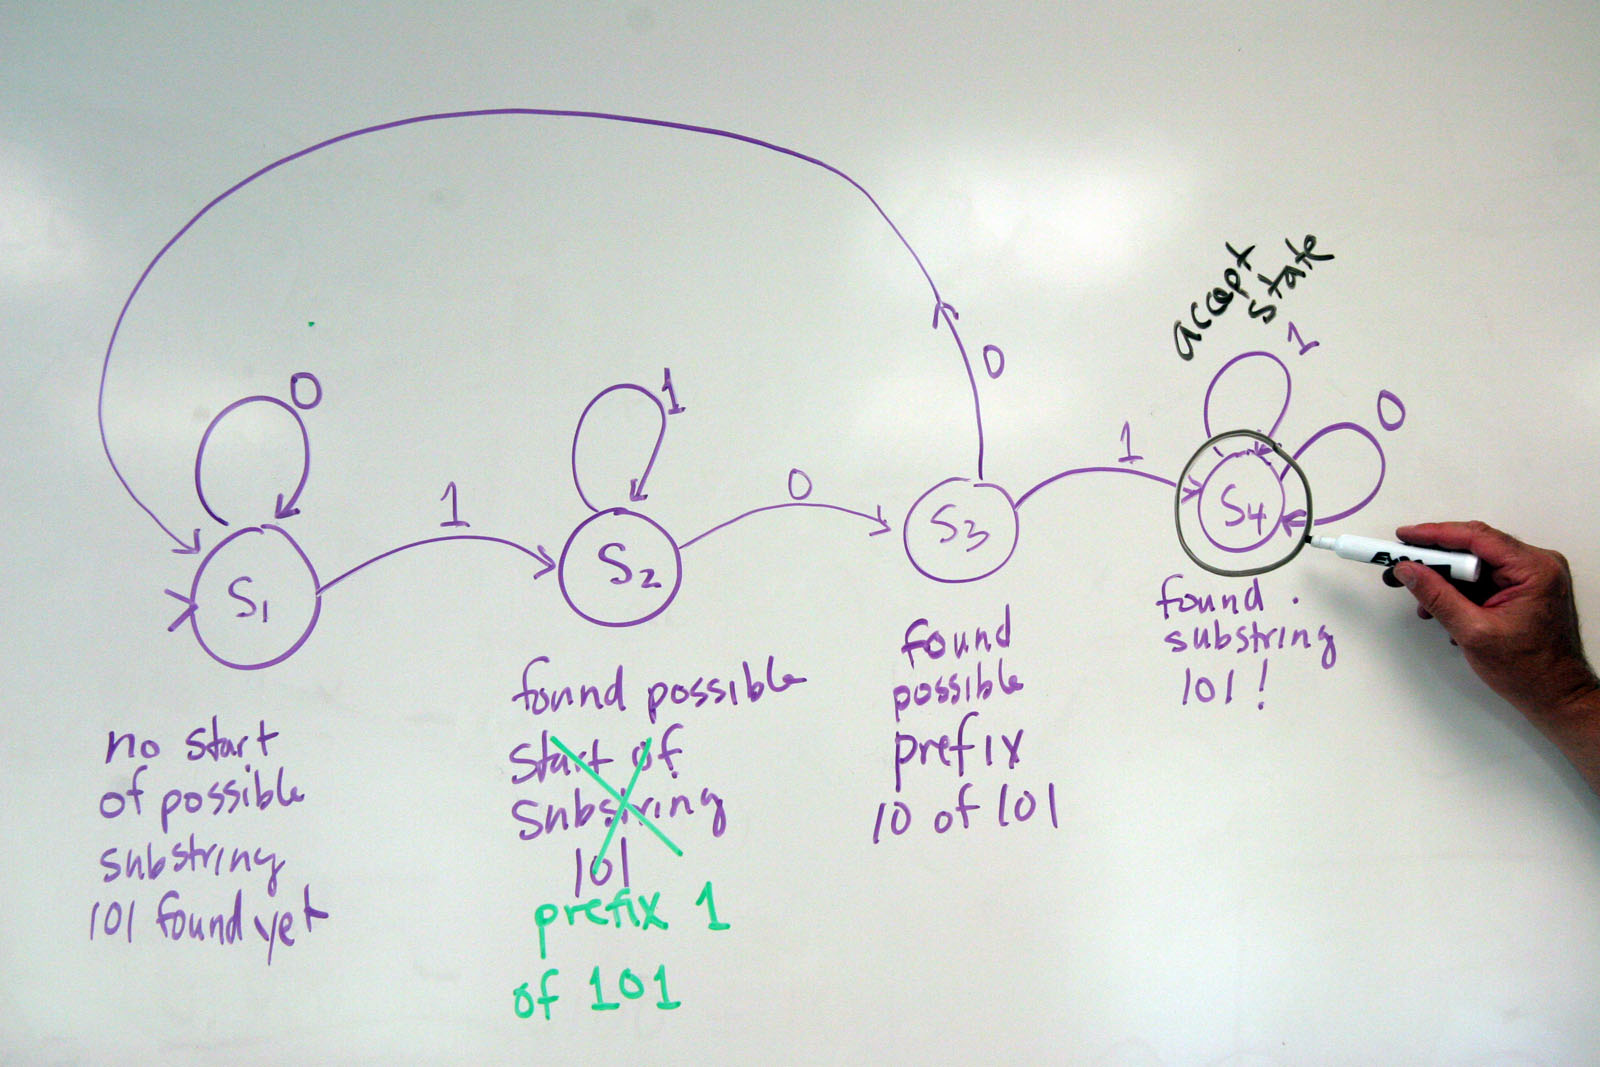 accept
state
0
1
0
1
0
1
1
0
S1
S2
S3
S4
no start
of possible
substring
101 found yet
found possible
start of
substring
101
prefix 1
of 101
found
possible
prefix
10 of 101
found
substring
101!